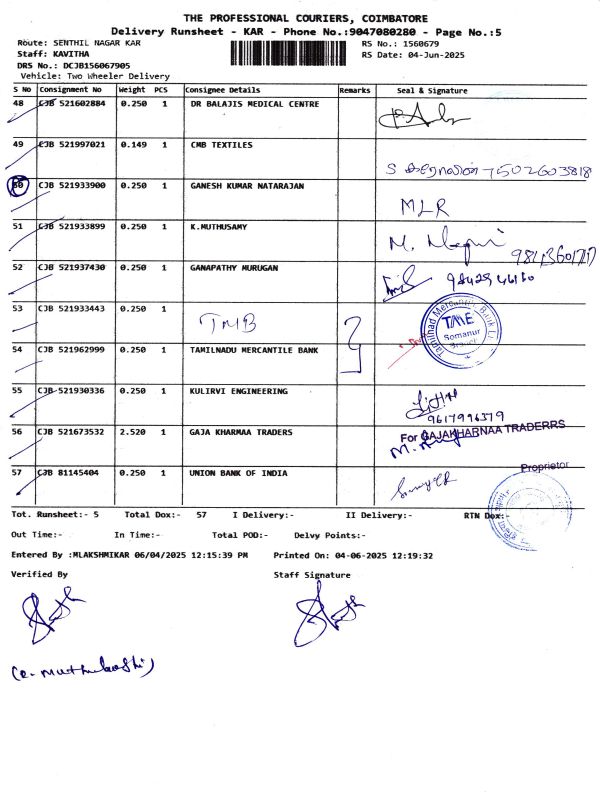 THE PROFESSIONAL COURIERS, COIMBATORE
Delivery Runsheet - KAR - Phone No.:9047080280 - Page No.:5
Route: SENTHIL NAGAR KAR
RS No.: 1560679
Staff: KAVITHA
RS Date: 04-Jun-2025
DRS No.: DCJB156067905
Vehicle: Two Wheeler Delivery
S No Consignment No Weight PCS Consignee Details Remarks Seal & Signature
48 CJB 521602884 0.250 1 DR BALAJIS MEDICAL CENTRE
49 CJB 521997021 0.149 1 CMB TEXTILES
7502603818
50 CJB 521933900 0.250 1 GANESH KUMAR NATARAJAN
MLR
51 CJB 521933899 0.250 1 K.MUTHUSAMY
52 CJB 521937430 0.250 1 GANAPATHY MURUGAN
53 CJB 521933443 0.250 1 TMB
Tamilnad Mercantile Bank Lt
TMB
Somanur
Branch
54 CJB 521962999 0.250 1 TAMILNADU MERCANTILE BANK
55 CJB 521930336 0.250 1 KULIRVI ENGINEERING
9617996379
56 CJB 521673532 2.520 1 GAJA KHARMAA TRADERS
For GAJAKHARNAA TRADERRS
Proprietor
57 CJB 81145404 0.250 1 UNION BANK OF INDIA
Tot. Runsheet:- 5 Total Dox:- 57 I Delivery:- II Delivery:- RTN Dox:-
Out Time:- In Time:- Total POD:- Delvy Points:-
Entered By :MLAKSHMIKAR 06/04/2025 12:15:39 PM Printed On: 04-06-2025 12:19:32
Verified By Staff Signature